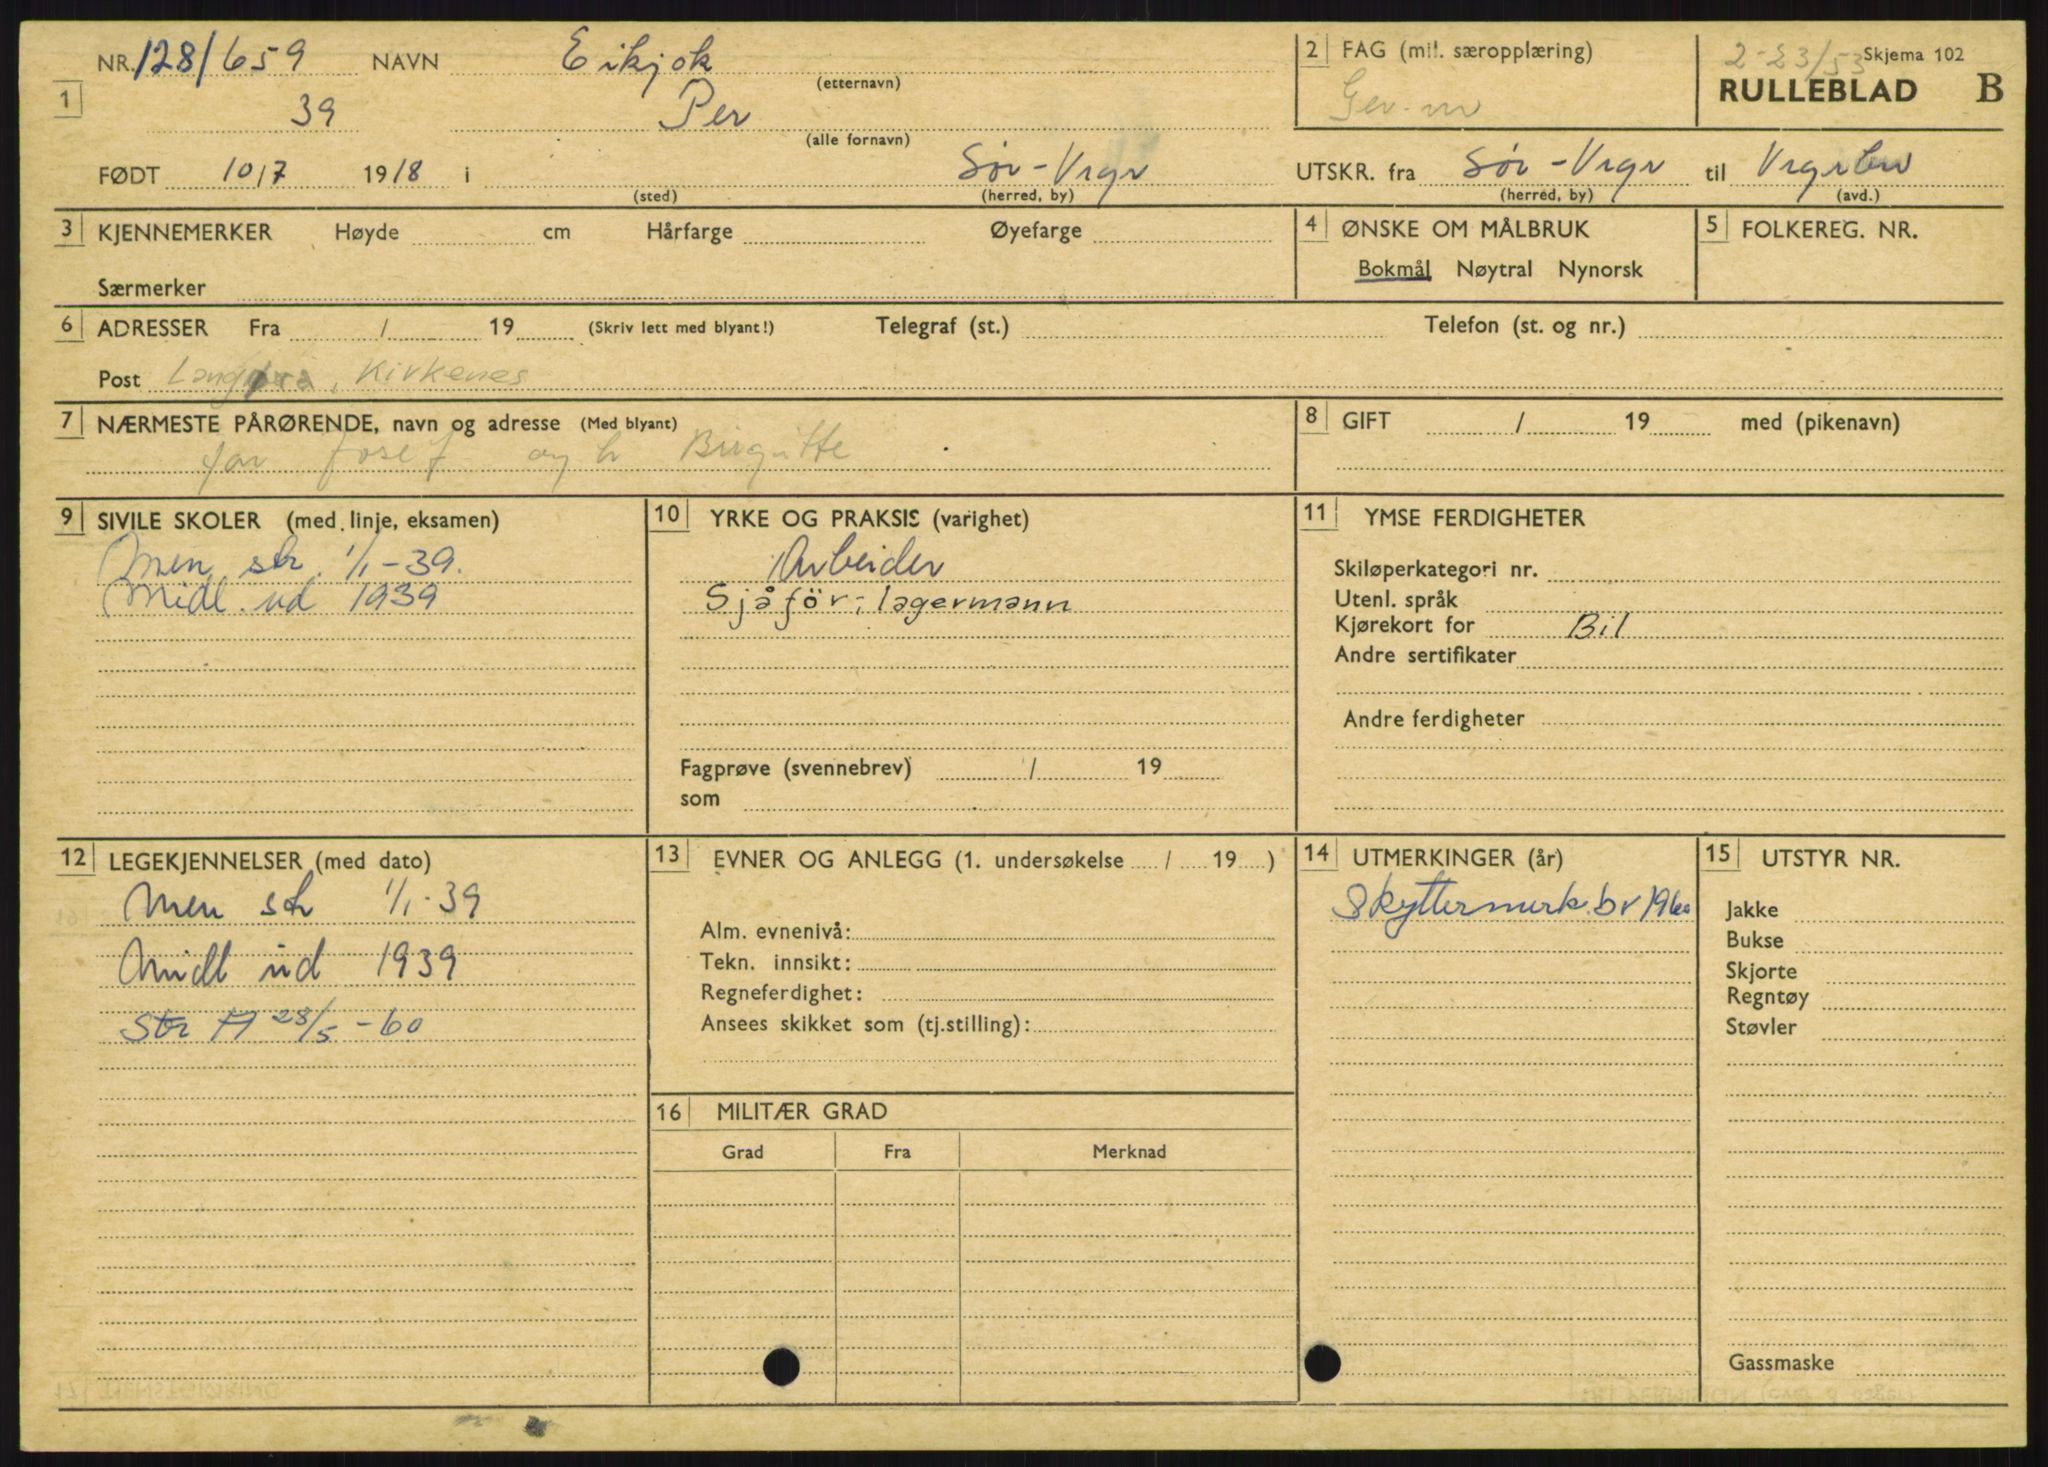 NR. 128/659 NAVN Eikjok
(etternavn)
1 39 Per
(alle fornavn)
FØDT 10/7 1918 i Sør-Vrgr
(sted) (herred, by)
2 FAG (mil. særopplæring)
Gev.m
2-23/53 Skjema 102
RULLEBLAD B
UTSKR. fra Sør-Vrgr til
(herred, by) (avd.)
3 KJENNEMERKER Høyde cm Hårfarge Øyefarge
Særmerker
4 ØNSKE OM MÅLBRUK
Bokmål Nøytral Nynorsk
5 FOLKEREG. NR.
6 ADRESSER Fra / 19 (Skriv lett med blyant!) Telegraf (st.) Telefon (st. og nr.)
Post Kirkenes
7 NÆRMESTE PÅRØRENDE, navn og adresse (Med blyant)
far Josef og h Birgitte
8 GIFT / 19 med (pikenavn)
9 SIVILE SKOLER (med linje, eksamen)
Men str. 1/1-39.
Midl. ud 1939
10 YRKE OG PRAKSIS (varighet)
Arbeider
Sjåför; lagermann
Fagprøve (svennebrev) / 19
som
11 YMSE FERDIGHETER
Skiløperkategori nr.
Utenl. språk
Kjørekort for Bil
Andre sertifikater
Andre ferdigheter
12 LEGEKJENNELSER (med dato)
Men str 1/1-39
Midl ud 1939
Str A 28/5-60
13 EVNER OG ANLEGG (1. undersøkelse / 19 )
Alm. evnenivå:
Tekn. innsikt:
Regneferdighet:
Ansees skikket som (tj.stilling):
14 UTMERKINGER (år)
Skyttermerk. br 1960
15 UTSTYR NR.
Jakke
Bukse
Skjorte
Regntøy
Støvler
Gassmaske
16 MILITÆR GRAD
Grad Fra Merknad